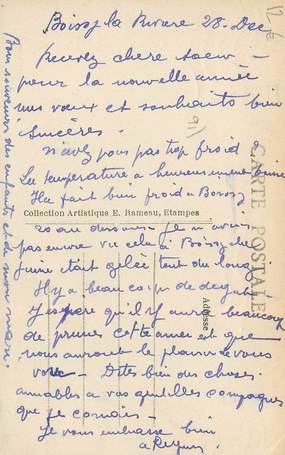 Boissy la Rivière 28 Dec
Recevez chere soeur
pour la nouvelle année
mes voeux et souhaits bien
sincères.
n'avez vous pas trop froid
La température a heureusement
Il a fait bien froid à Boissy
Collection Artistique E. Rameau, Etampes
20 au dessous je n'avais
pas encore vu cela à Boissy la
Juine était gelée tout du long
Il y a beaucoup de degats
J'espère qu'il y aura beaucoup
de prunes cette année et que
nous aurons le plaisir de vous
voir - Dites bien des choses
aimables a vos gentilles compagnes
que je connais -
Je vous embrasse bien
Bon souvenir des enfants et de mon mari.
CARTE POSTALE
Adresse
12 €
91)